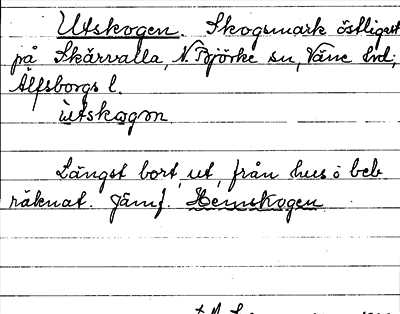 Utskogen. Skogsmark östligast
på Skårvalla, N. Björke sn, Väne hd;
Älfsborgs l.
ùtskogɷn.
Längst bort, ut, från hus o beb
räknat. Jämf. Hemskogen